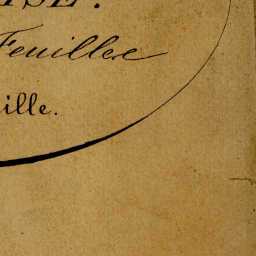 ISE.
Feuillée
ille.